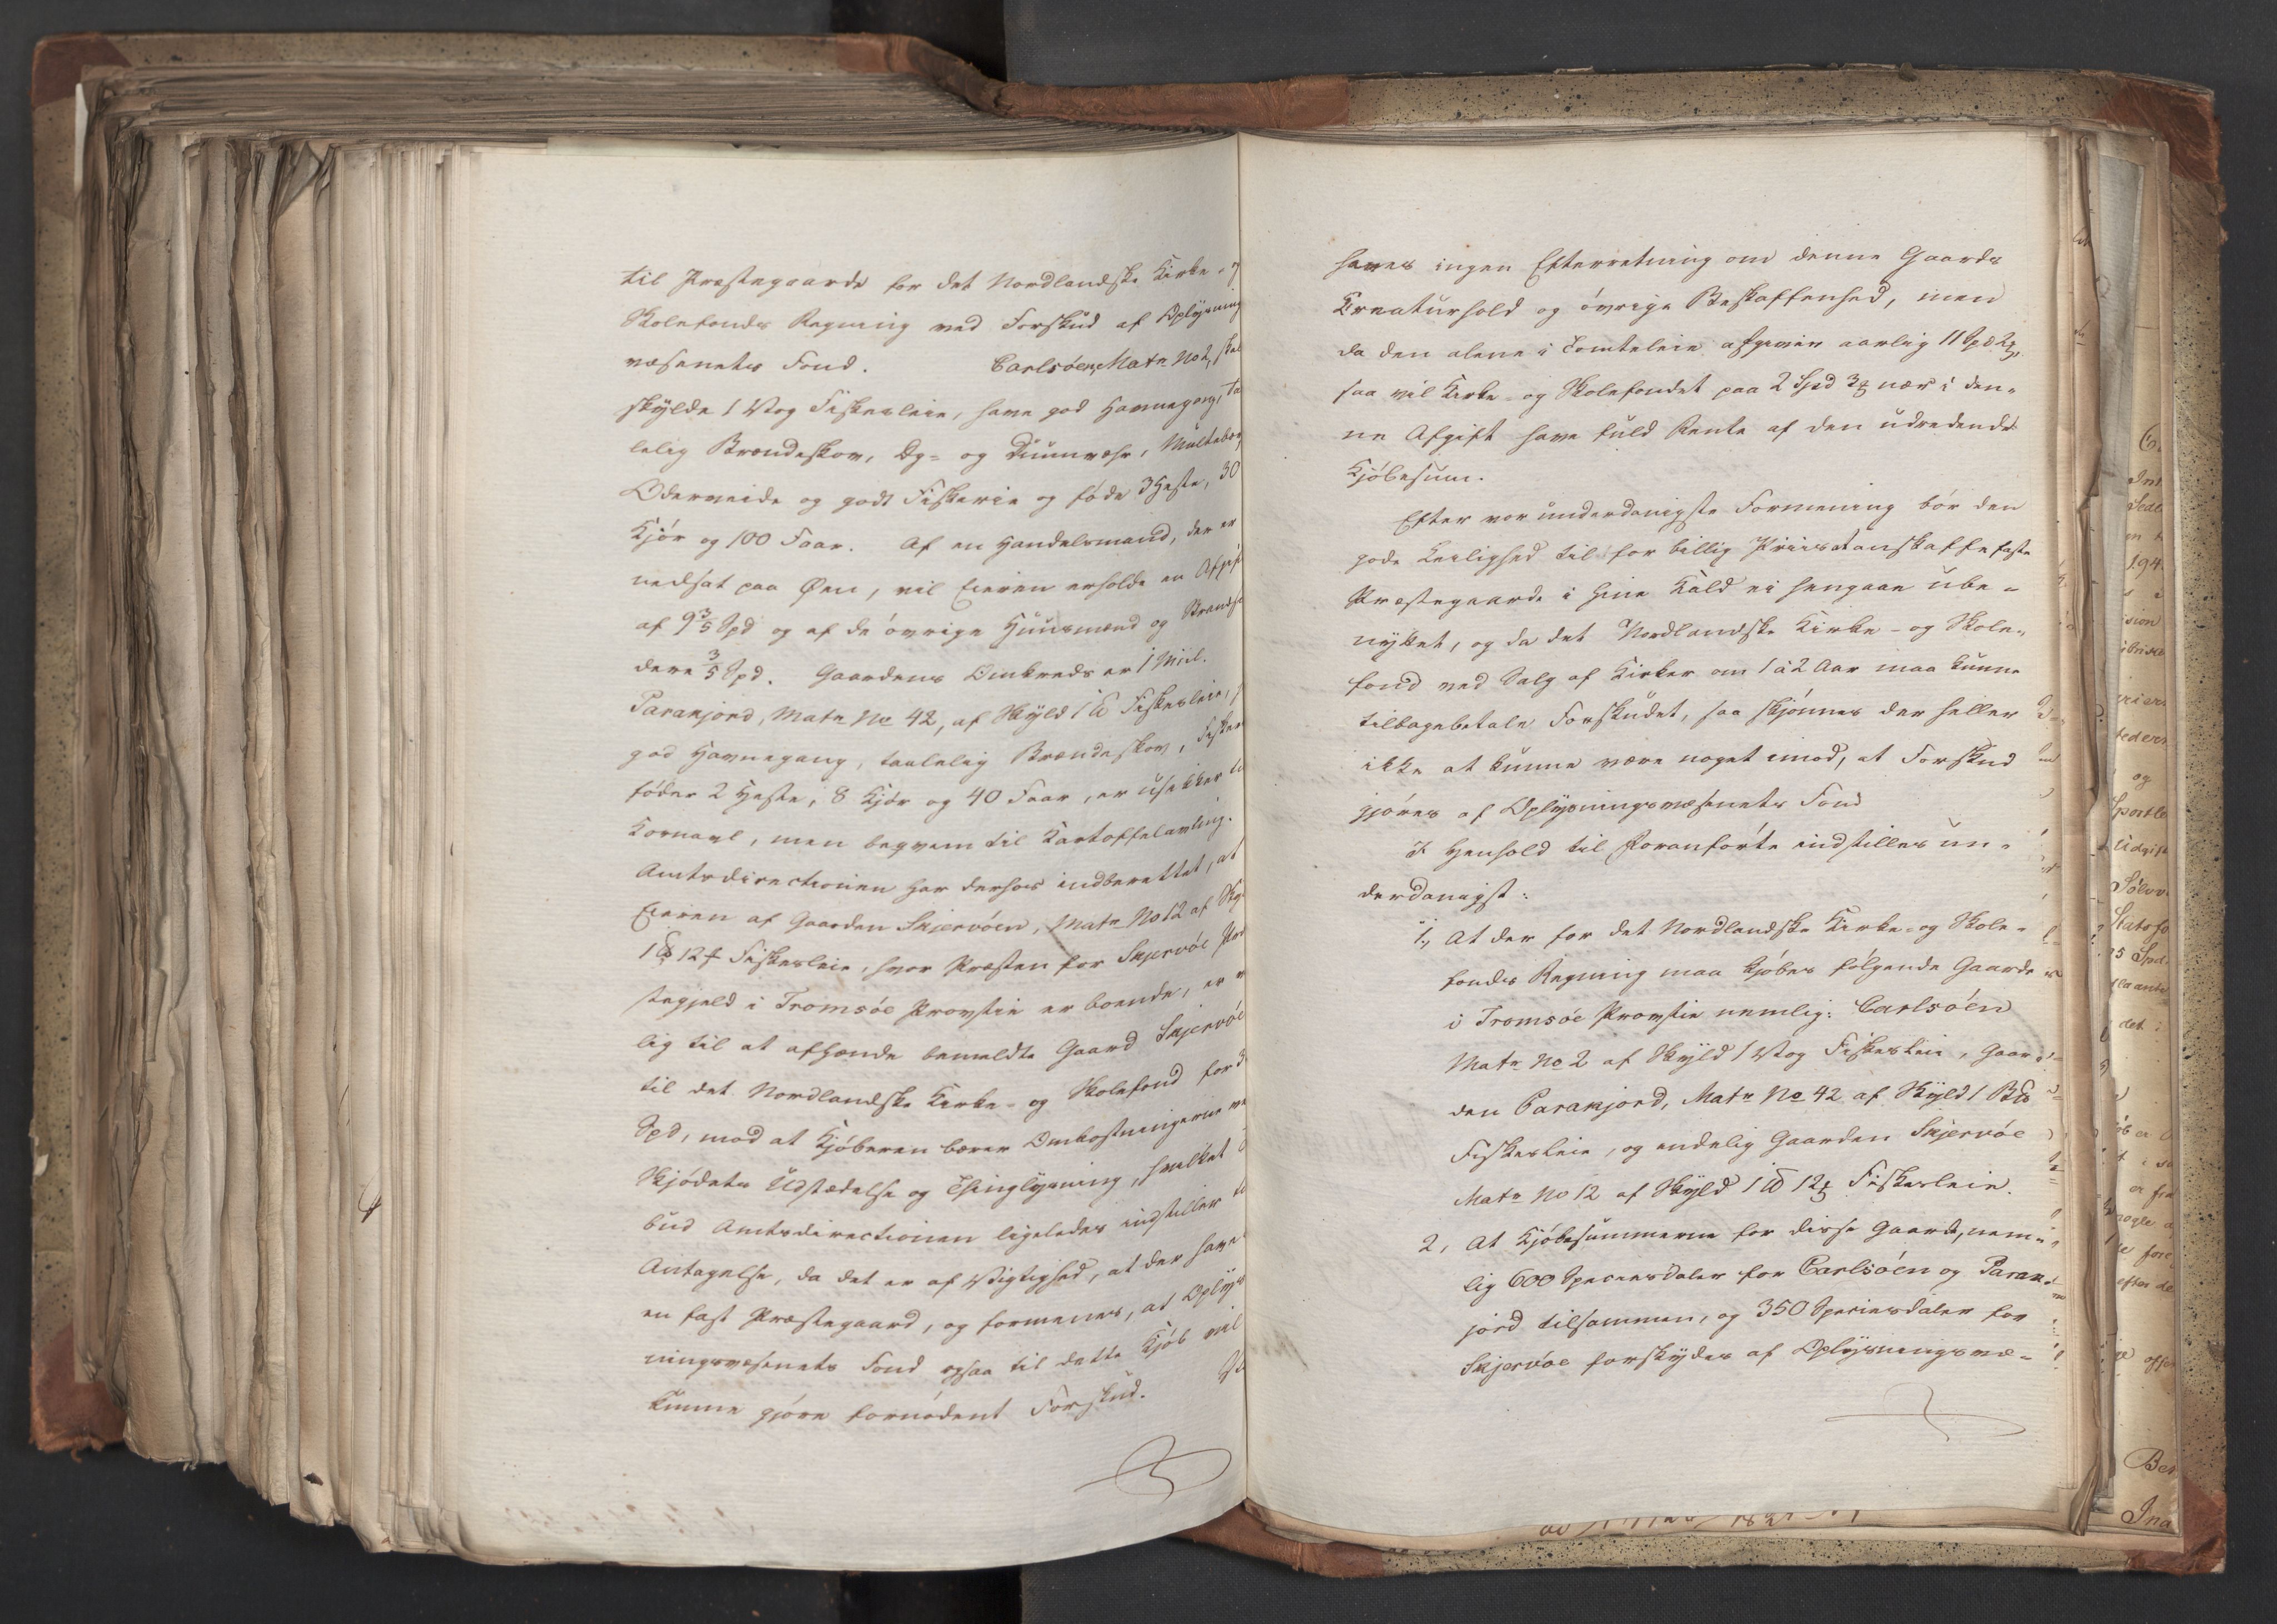 til Præstegaarde for det Nordlandske Kirke- og
Skolefonds Regning ved Forskud af Oplysning
væsenets Fond. Carlsöen, Matr No 2, skal
skylde 1 Vog Fiskesleie, have god Havnegang, ta
lelig Brændeskov, Eg- og Duunvær, Multebær
Oderveide og godt Fiskerie og föde 3 Heste, 30
Kjör og 100 Faar. Af en Handelsmand, der er
nedsat paa Öen, vil Eieren erholde en Afgift
af 9 3/5 Spd og af de övrige Huusmænd og Strandsi
dere 3/5 Spd. Gaardens Omkreds er 1 Miil.
Parakjord, Matr No 42, af Skyld 1 Fiskesleie,
god Havnegang, taalelig Brændeskov, Fisker
föder 2 Heste, 8 Kjör og 40 Faar, er usikker til
Kornavl, men beqvem til Kartoffelavling.
Amtsdirectionen har derhos indberettet, at
Eieren af Gaarden Skjervöen, Matr No 12 af Sky
1 12 Fiskesleie, hvor Præsten for Skjervöe Præ
stegjeld i Tromsöe Provstie er boende, er v
lig til at afhænde bemeldte Gaard Skjervöe
til det Nordlandske Kirke- og Skolefond for 3
Spd, mod at Kjöberen bærer Omkostningerne ve
Skjödets Udstædelse og Thinglysning, hvilket
bud Amtsdirectionen ligeledes indstiller til
Antagelse, da det er af Vigtighed, at der have
en fast Præstegaard, og formenes, at Oplys
ningsvæsenets Fond ogsaa til dette Kjöb vil
kunne gjöre fornödent Forskud.
haves ingen Efterretning om denne Gaards
Kreaturhold og övrige Beskaffenhed, men
da den alene i Tomteleie afgiver aarlig 11 Spd 2
saa vil Kirke- og Skolefondet paa 2 Spd 3 nær i den-
ne Afgift have fuld Rente af den udredende
Kjöbesum.
Efter vor underdanigste Formening bör den
gode Leilighed til for billig Priis at anskaffe faste
Præstegaarde i hine Kald ei hengaae ube-
nyttet, og da det Nordlandske Kirke- og Skole-
fond ved Salg af Kirker om 1 à 2 Aar maa kunne
tilbagebetale Forskudet, saa skjönnes der heller
ikke at kunne være noget imod, at Forskud
gjöres af Oplysningsvæsenets Fond
I Henhold til Foranförte indstilles un-
derdanigst:
1, At der for det Nordlandske Kirke- og Skole-
fonds Regning maa kjöbes fölgende Gaarde
i Tromsöe Provstie nemlig: Carlsöen
Matr No 2 af Skyld 1 Vog Fiskesleie, Gaar-
den Parakjord, Matr No 42 af Skyld 1
Fiskesleie, og endelig Gaarden Skjervöe
Matr No 12 af Skyld 1 12 Fiskesleie.
2, At Kjöbesummerne for disse Gaarde, nem-
lig 600 Speciesdaler for Carlsöen og Parak-
jord tilsammen, og 350 Speciesdaler for
Skjervöe forskydes af Oplysningsvæ-